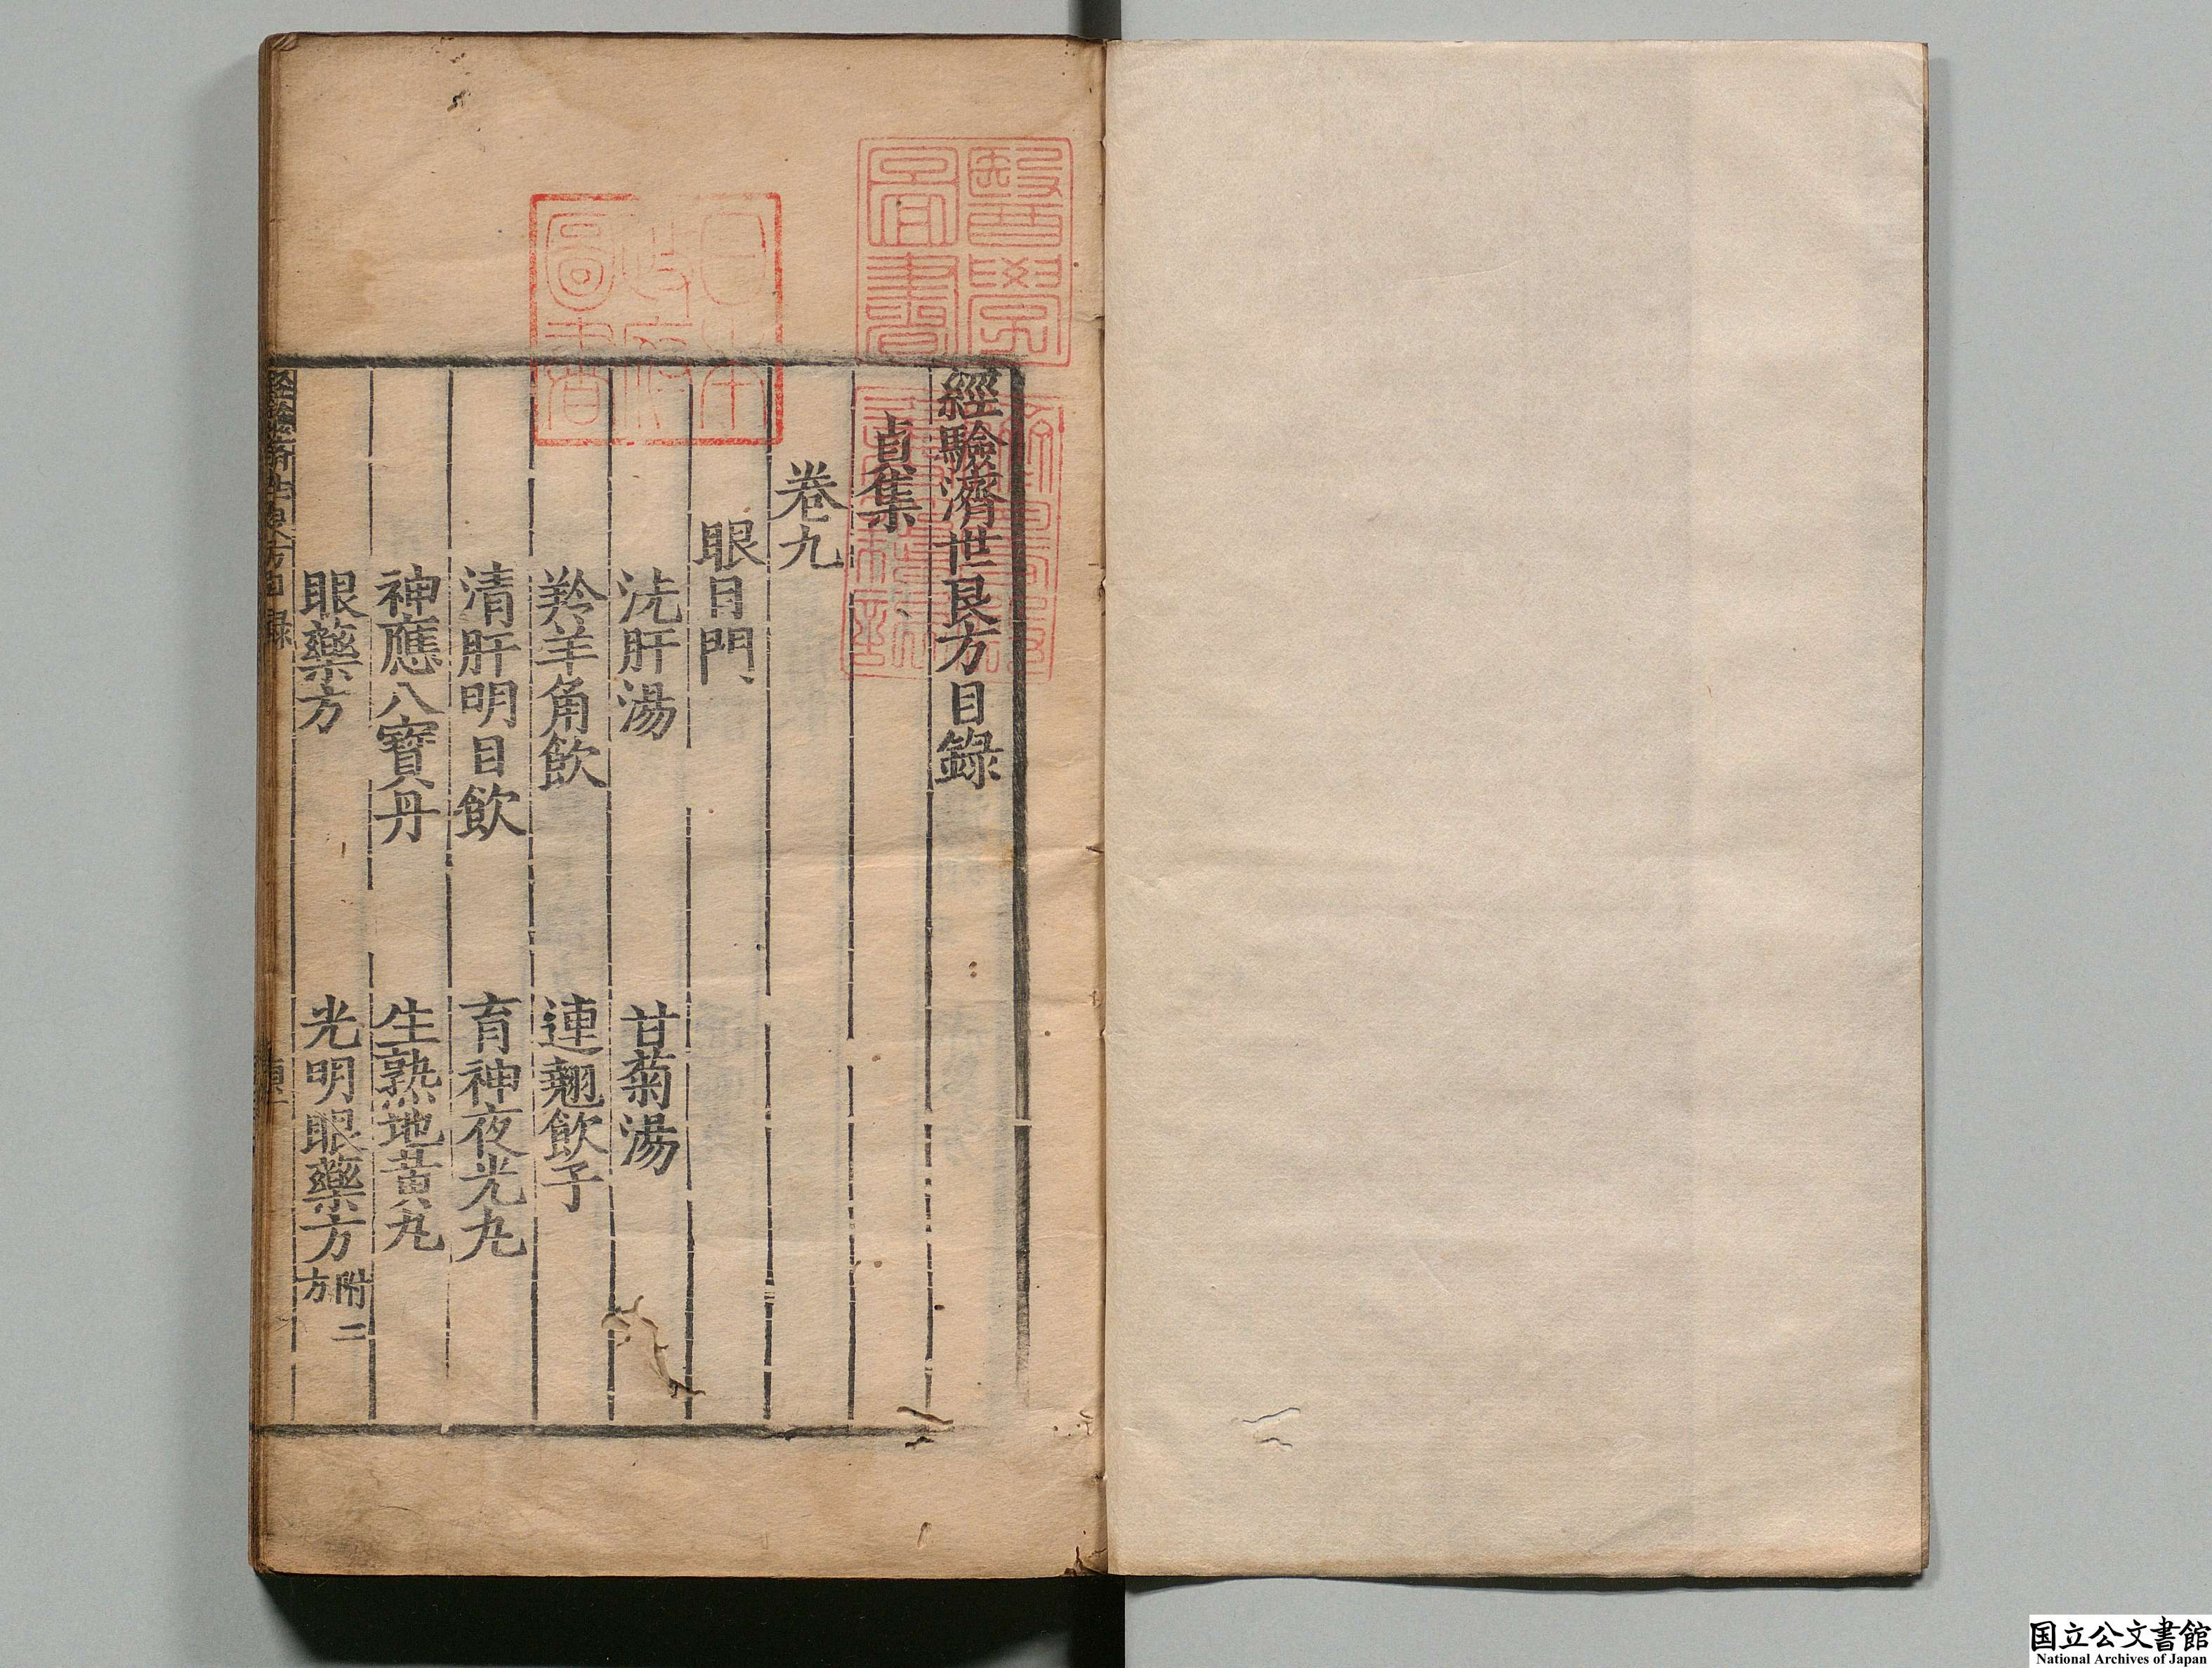 經驗濟世良方目錄
貞集
卷九
眼目門
洗肝湯 甘菊湯
羚羊角飲 連翹飲子
清肝明目飲 育神夜光丸
神應八寶丹 生熟地黃丸
眼藥方 光明眼藥方附二方
經驗濟世良方目錄
醫學圖書
日本政府圖書
国立公文書館
National Archives of Japan